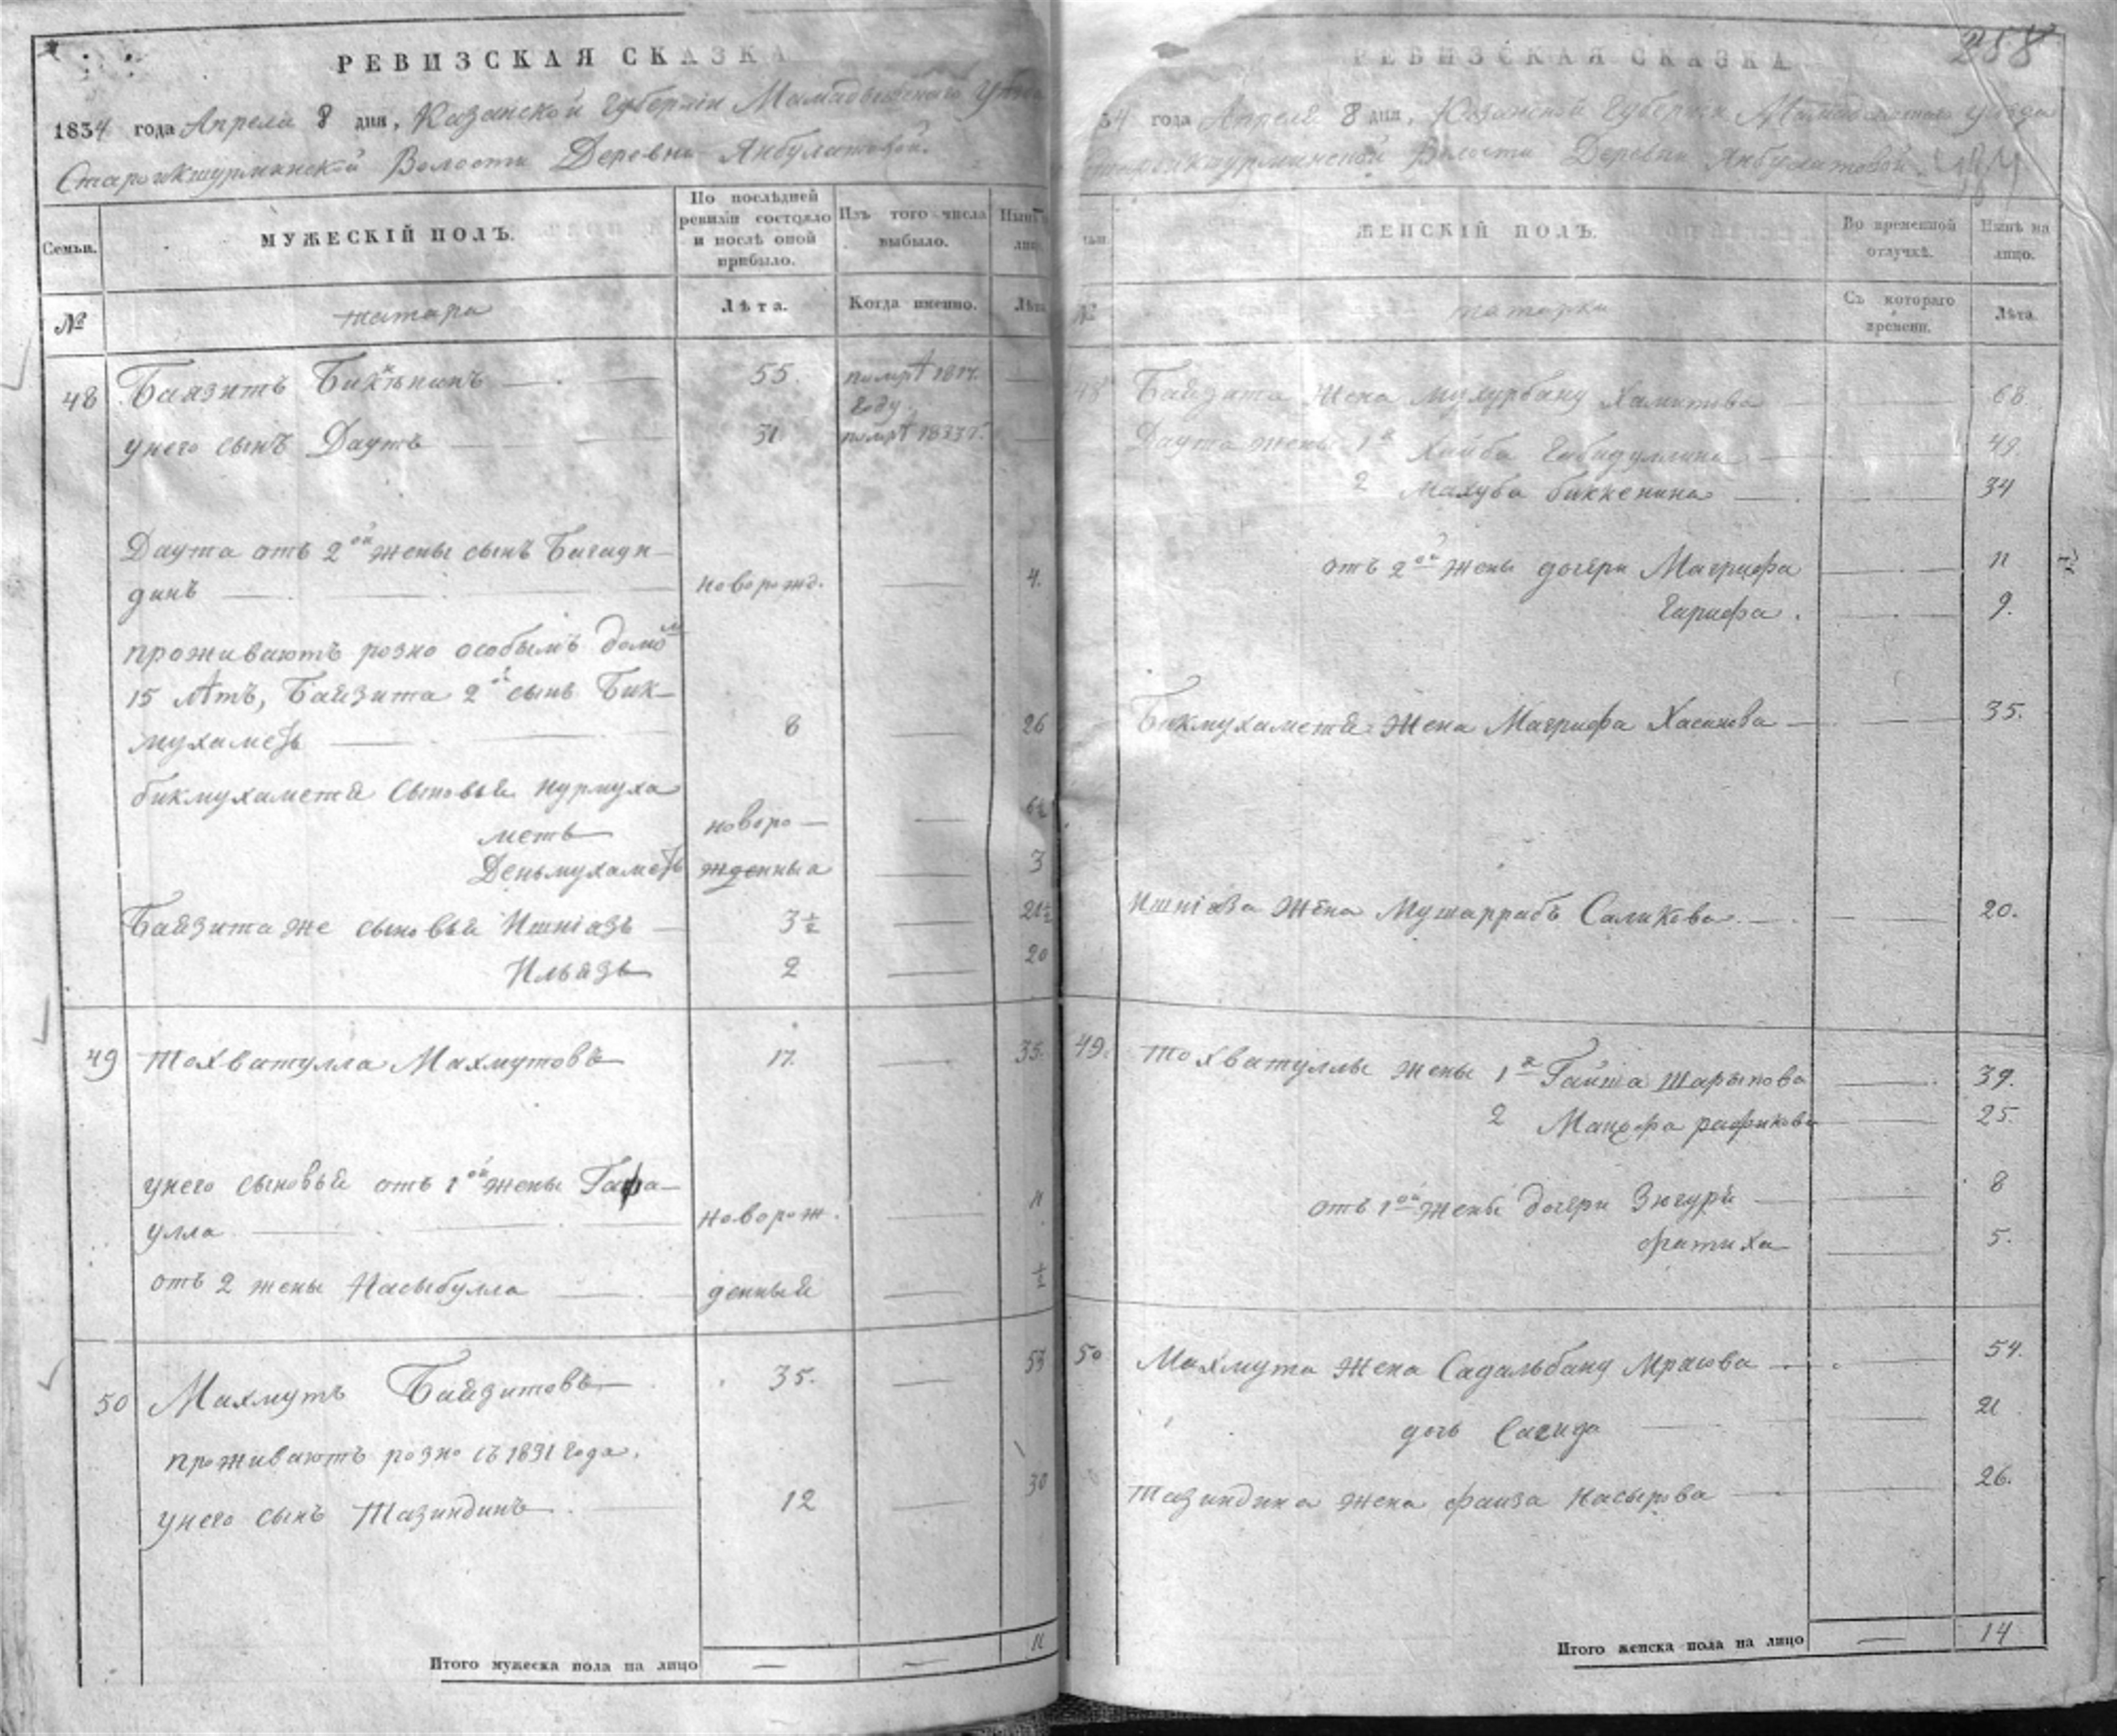 РЕВИЗСКАЯ СКАЗКА
1834 года Апреля 8 дня, Казанской Губернии Мамадышскаго Уезда
Староикшурминской Волости Деревни Янбулатовой.
Семьи.
МУЖЕСКІЙ ПОЛЪ.
По послѣдней ревизіи состояло и послѣ оной прибыло.
Изъ того числа выбыло.
Нынѣ на лицо.
№
татара
Лѣта.
Когда именно.
Лѣта
48 Баязитъ Бикѣнинъ 55. помрѣ 1817. году.
у него сынъ Даутъ 31 помрѣ 1833 г.
Даута отъ 2ой жены сынъ Багаун-
динъ новорожд. 4.
проживаютъ розно особымъ домомъ
15 лѣтъ, Баязита 2й сынъ Бик-
мухаметь 8 26
бикмухаметя сыновья нурмуха
меть новоро- 6½
Деньмухаметь жденныа 3
Баязита же сыновья Ишніазь 3½ 21½
Ильязь 2 20
49 тохватулла Махмутовъ 17. 35.
у него сыновья отъ 1ой жены Гафа-
улла новорож. 11
отъ 2 жены Насыбулла денный ½
50 Махмутъ Баязитовъ 35. 53
проживаютъ розно съ 1831 года.
у него сынъ Тазиндинъ 12 30
Итого мужеска пола на лицо 11
258
РЕВИЗСКАЯ СКАЗКА
34 года Апреля 8 дня, Казанской Губернии Мамадышскаго уезда
Староикшурминской Волости Деревни Янбулатовой
ЖЕНСКІЙ ПОЛЪ.
Во временной отлучкѣ.
Нынѣ на лицо.
№
татарки
Съ котораго времени.
Лѣта.
48 Баязита жена Мухурбану Хамитова 68.
Даута жены 1я Хайба Габидуллина 49.
2 Махуба биккенина 34
отъ 2ой жены дочери Магрифа 11
Гарифа. 9.
Бикмухаметя жена Магрифа Хасанова 35.
Ишніаза жена Мушаррабъ Саликова 20.
49. тохватуллы жены 1я Гайша Шарыпова 39.
2 рафикова 25.
отъ 1ой жены дочери Зюгуря 8
фатиха 5.
50 Махмута жена Садальбану Мрясова 54.
дочь Сагида 21
тазиндина жена фаиза насырова 26.
Итого женска пола на лицо 14